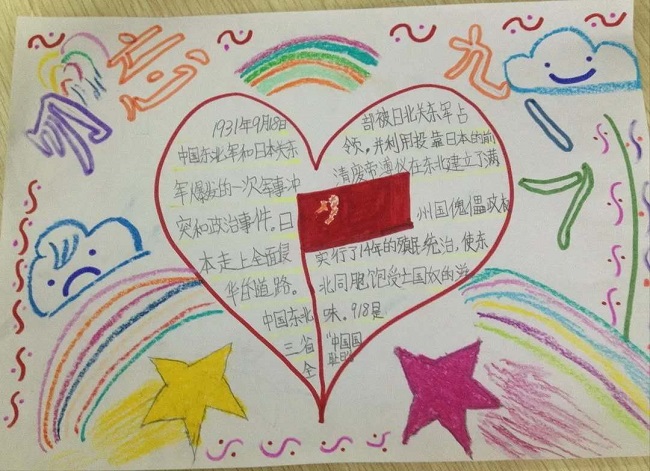 勿忘九一八
1931年9月18日
中国东北军和日本关东
军爆发的一次军事冲
突和政治事件。日
本走上全面侵
华的道路。
中国东北
三省
全
部被日北关东军占
领，并利用投靠日本的前
清废帝溥仪在东北建立了满
州国傀儡政权
实行了14年的殖民统治，使东
北同胞饱受亡国奴的滋
味。918是
“中国国
耻日”